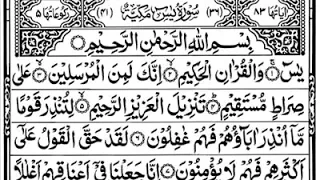 اٰیَاتُهَا ٨٣ (٣٦) سُوْرَةُ يٰسٓ مَكِّيَّةٌ (٤١) رُكُوْعَاتُهَا ٥
بِسْمِ اللّٰهِ الرَّحْمٰنِ الرَّحِيْمِ
يٰسٓ ۚ وَالْقُرْاٰنِ الْحَكِيْمِ ۙ اِنَّكَ لَمِنَ الْمُرْسَلِيْنَ ۙ عَلٰى
صِرَاطٍ مُّسْتَقِيْمٍ ؕ تَنْزِيْلَ الْعَزِيْزِ الرَّحِيْمِ ۙ لِتُنْذِرَ قَوْمًا
مَّاۤ اُنْذِرَ اٰبَآؤُهُمْ فَهُمْ غٰفِلُوْنَ لَقَدْ حَقَّ الْقَوْلُ عَلٰۤى
اَكْثَرِهِمْ فَهُمْ لَا يُؤْمِنُوْنَ اِنَّا جَعَلْنَا فِيْۤ اَعْنَاقِهِمْ اَغْلٰلًا